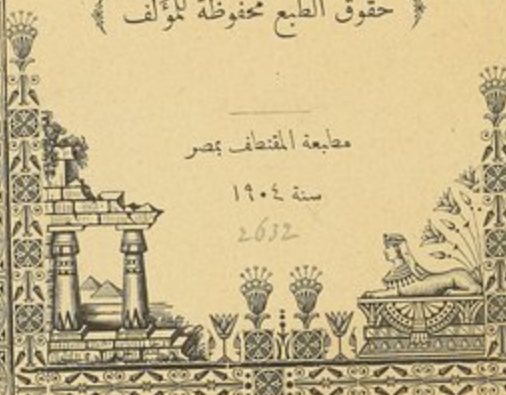 ﴿ حقوق الطبع محفوظة للمؤلف ﴾
مطبعة المقتطف بمصر
سنة ١٩٠٤
2632